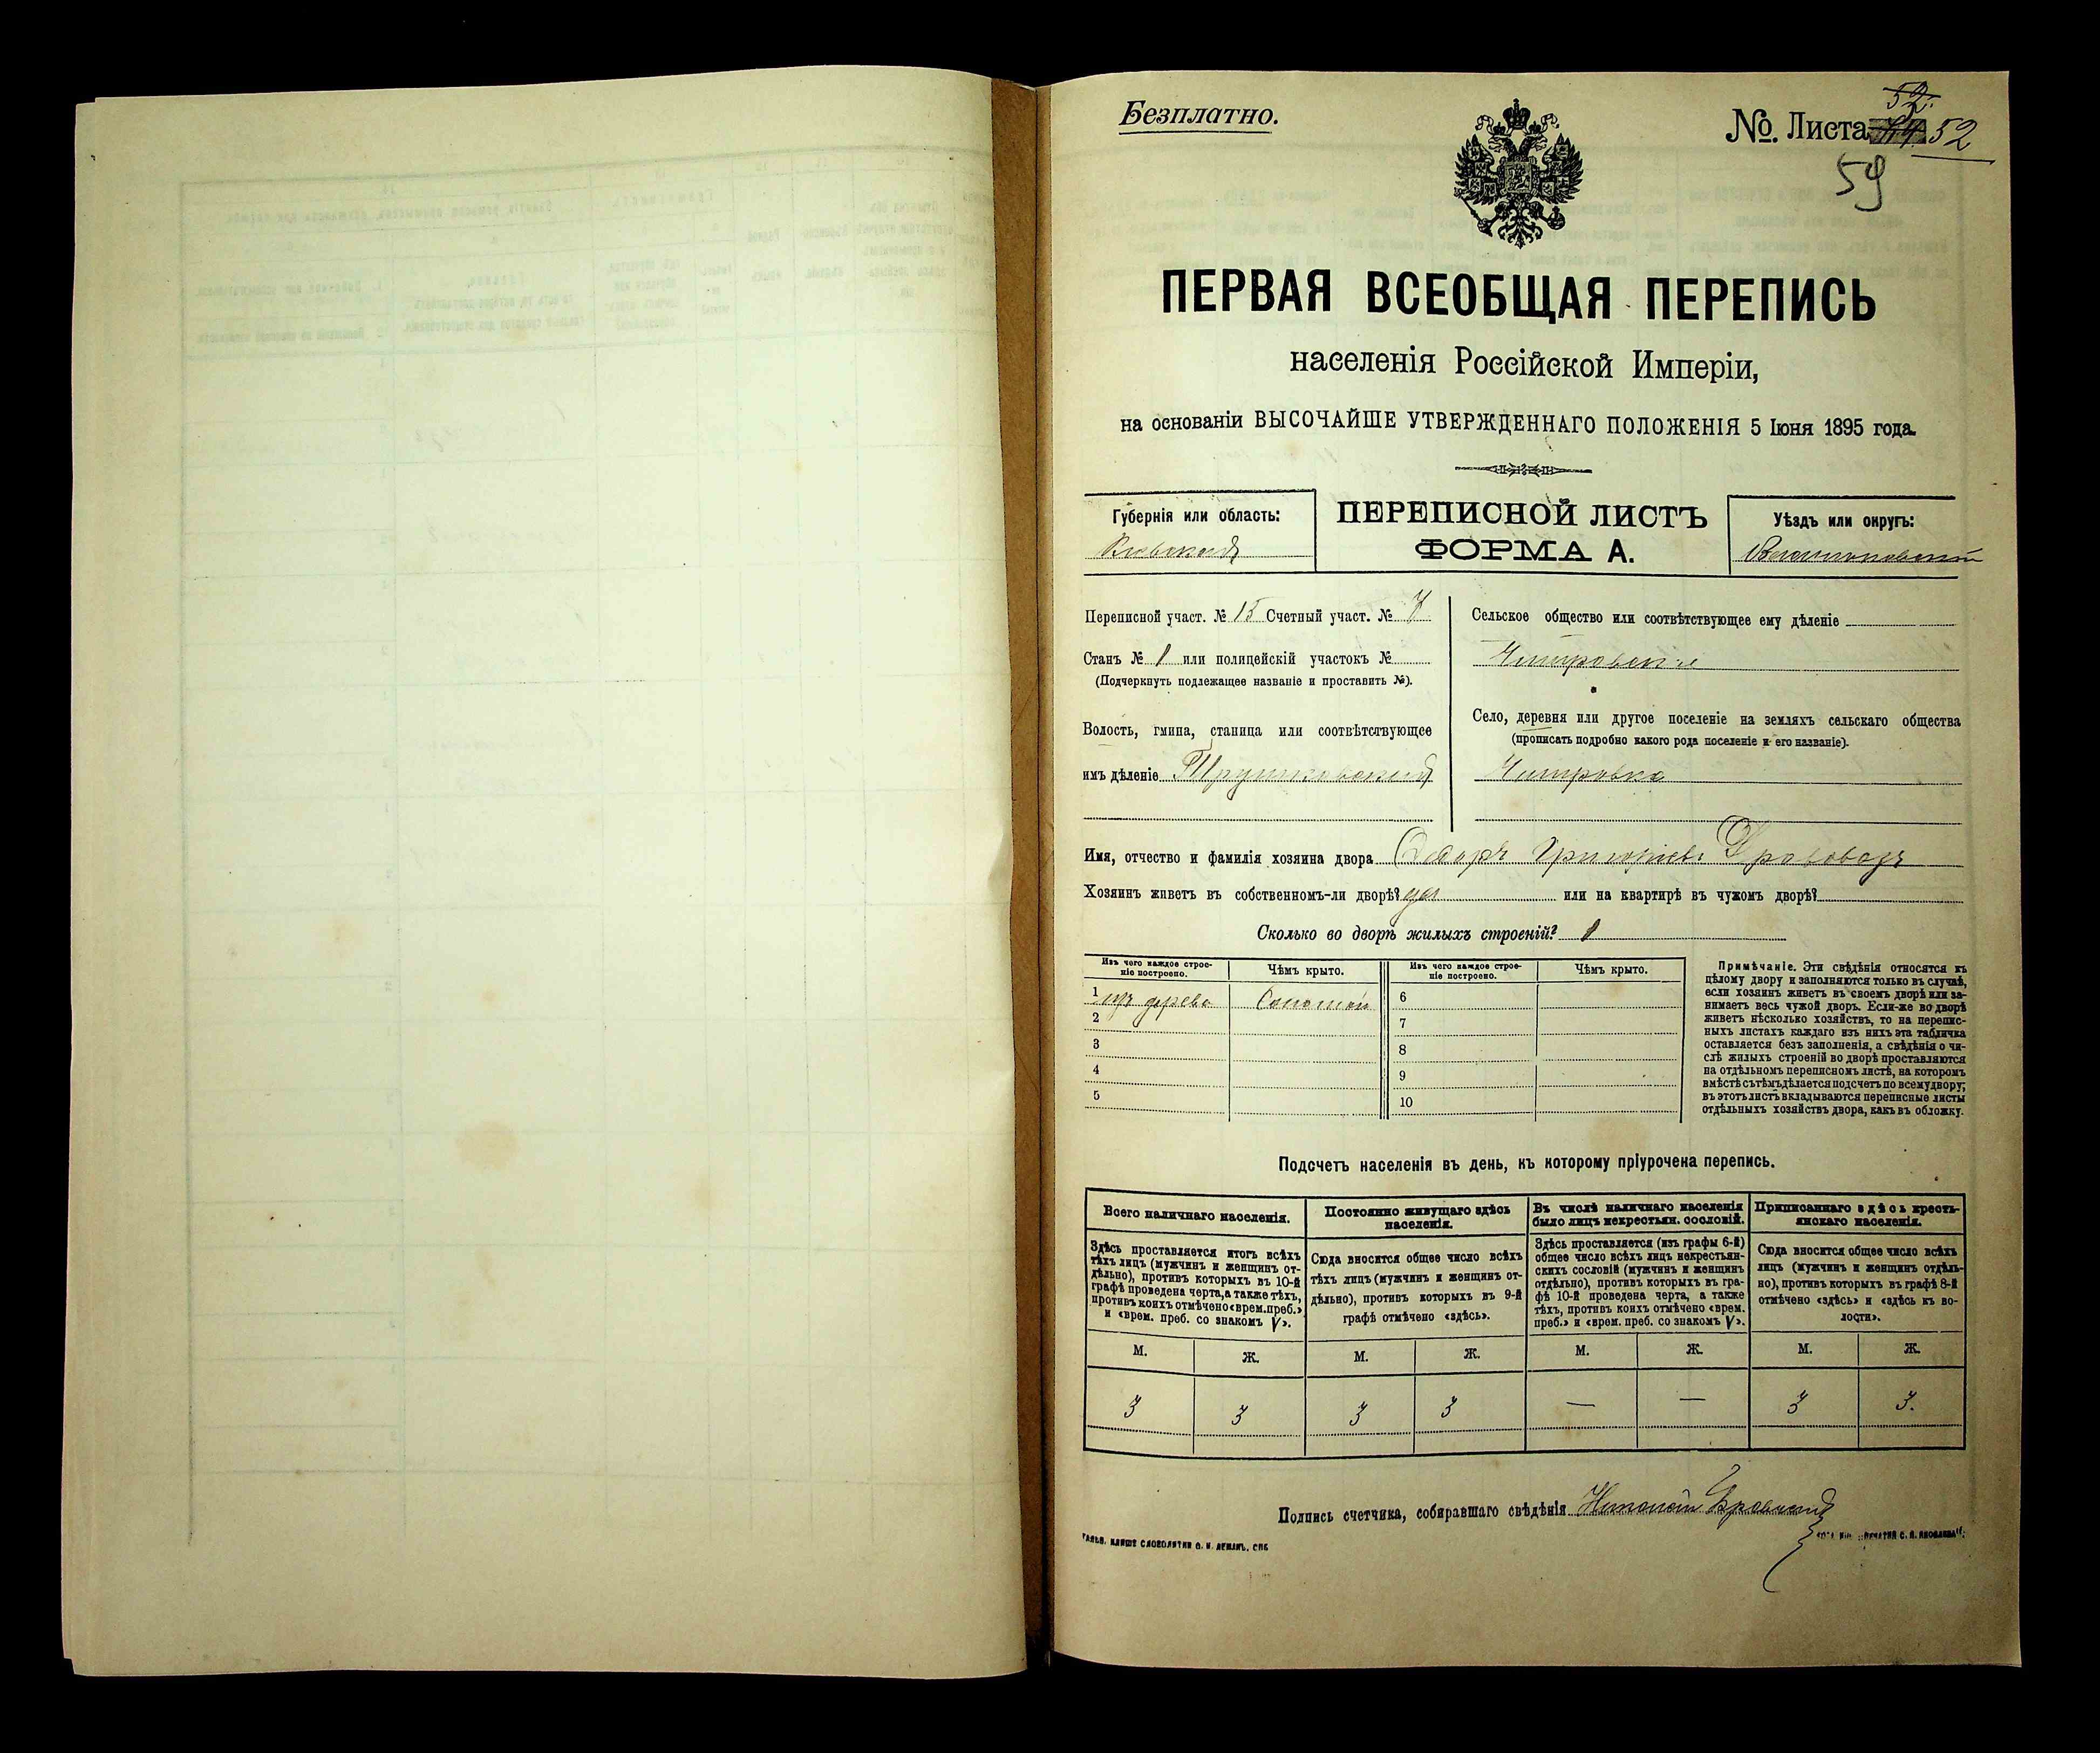 Безплатно.
52.
№. Листа 52
59
ПЕРВАЯ ВСЕОБЩАЯ ПЕРЕПИСЬ
населенія Россійской Имперіи,
на основаніи ВЫСОЧАЙШЕ УТВЕРЖДЕННАГО ПОЛОЖЕНІЯ 5 Іюня 1895 года.
Губернія или область:
Кіевская
ПЕРЕПИСНОЙ ЛИСТЪ
ФОРМА А.
Уѣздъ или округъ:
Переписной участ. № 15 Счетный участ. № 7
Станъ № 1 или полицейскій участокъ №
(Подчеркнуть подлежащее названіе и проставить №).
Волость, гмина, станица или соотвѣтствующее
имъ дѣленіе
Сельское общество или соотвѣтствующее ему дѣленіе
Село, деревня или другое поселеніе на земляхъ сельскаго общества
(прописать подробно какого рода поселеніе и его названіе).
Имя, отчество и фамилія хозяина двора
Хозяинъ живетъ въ собственномъ-ли дворѣ? да или на квартирѣ въ чужомъ дворѣ?
Сколько во дворѣ жилыхъ строеній? 1
Изъ чего каждое строе-
ніе построено.
Чѣмъ крыто.
1 изъ дерева Соломой
2
3
4
5
Изъ чего каждое строе-
ніе построено.
Чѣмъ крыто.
6
7
8
9
10
Примѣчаніе. Эти свѣдѣнія относятся къ
цѣлому двору и заполняются только въ случаѣ,
если хозяинъ живетъ въ своемъ дворѣ или за-
нимаетъ весь чужой дворъ. Если-же во дворѣ
живетъ нѣсколько хозяйствъ, то на перепис-
ныхъ листахъ каждаго изъ нихъ эта табличка
оставляется безъ заполненія, а свѣдѣнія о чи-
слѣ жилыхъ строеній во дворѣ проставляются
на отдѣльномъ переписномъ листѣ, на которомъ
вмѣстѣ съ тѣмъ дѣлается подсчетъ по всему двору;
въ этотъ листъ вкладываются переписные листы
отдѣльныхъ хозяйствъ двора, какъ въ обложку.
Подсчетъ населенія въ день, къ которому пріурочена перепись.
Всего наличнаго населенія.
Здѣсь проставляется итогъ всѣхъ
тѣхъ лицъ (мужчинъ и женщинъ от-
дѣльно), противъ которыхъ въ 10-й
графѣ проведена черта, а также тѣхъ,
противъ коихъ отмѣчено «врем. преб.»
и «врем. преб. со знакомъ V».
Постоянно живущаго здѣсь
населенія.
Сюда вносится общее число всѣхъ
тѣхъ лицъ (мужчинъ и женщинъ от-
дѣльно), противъ которыхъ въ 9-й
графѣ отмѣчено «здѣсь».
Въ числѣ наличнаго населенія
было лицъ некрестьян. сословій.
Здѣсь проставляется (изъ графы 6-й)
общее число всѣхъ лицъ некрестьян-
скихъ сословій (мужчинъ и женщинъ
отдѣльно), противъ которыхъ въ гра-
фѣ 10-й проведена черта, а также
тѣхъ, противъ коихъ отмѣчено «врем.
преб.» и «врем. преб. со знакомъ V».
Приписаннаго здѣсь кресть-
янскаго населенія.
Сюда вносится общее число всѣхъ
лицъ (мужчинъ и женщинъ отдѣль-
но), противъ которыхъ въ графѣ 8-й
отмѣчено «здѣсь» и «здѣсь къ во-
лости».
М. Ж. М. Ж. М. Ж. М. Ж.
3 3 3 3 — — 3 3.
Подпись счетчика, собиравшаго свѣдѣнія